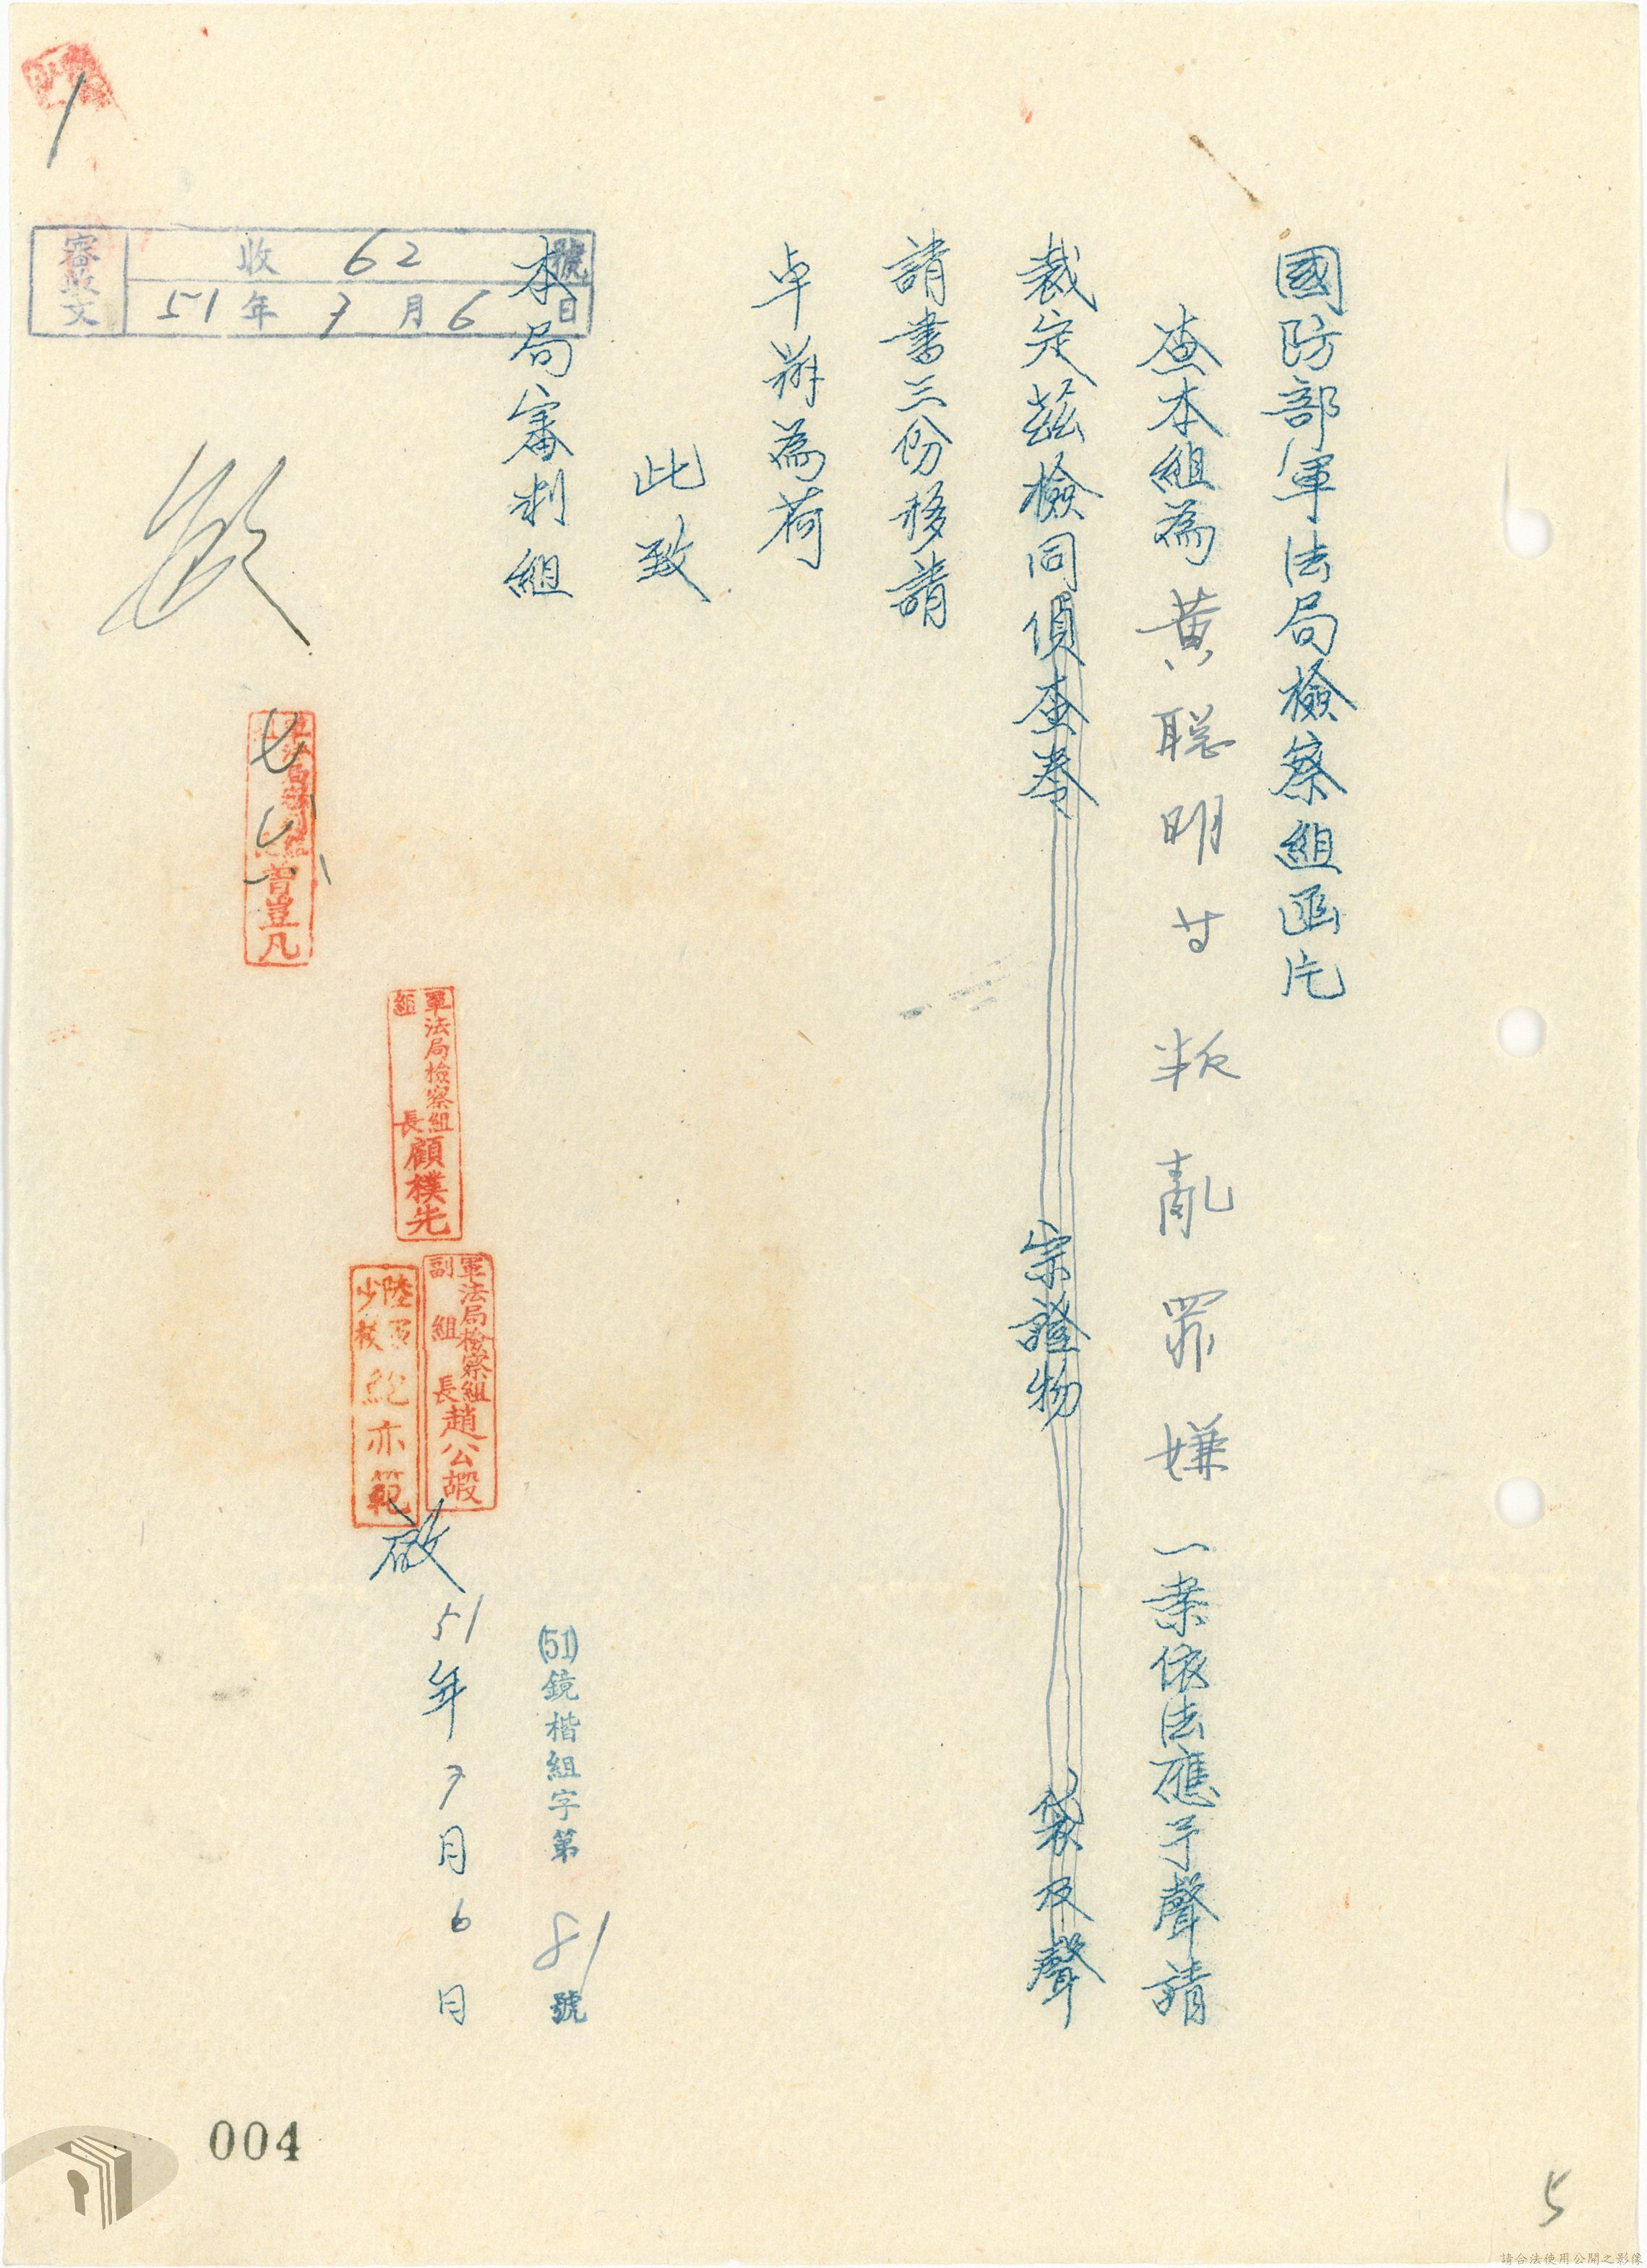 國防部軍法局檢察組函片
查本組為黃聰明等叛亂罪嫌一案依法應予聲請
裁定茲檢同偵查卷宗證物袋及聲
請書三份移請
卓辦為荷
此致
本局審判組
軍法局檢察組組長顧樸先
軍法局檢察組副組長趙公嘏
陸軍少校鮑亦範
啟
51年7月6日
(51)鏡楷組字第81號
審收文
收62號
51年7月6日
曾豈凡
七
004
5
請合法使用公開之影像